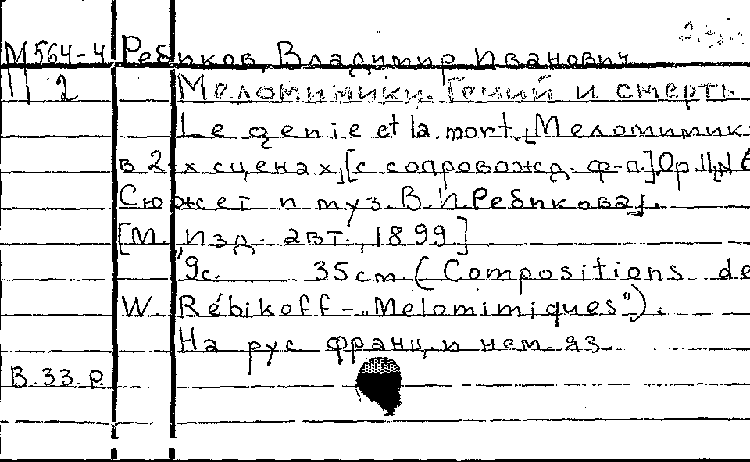 М564-4 Ребиков, Владимир Иванович
П 2 Меломимики. Гений и смерть.
Le genie et la mort. [Меломимик
в 2-х сценах, [с сопровожд. ф-п.] Ор. 11, N
Сюжет и муз. В. И. Ребикова].
[М., изд. авт., 1899]
9с. 35см. (Compositions de
W. Rébikoff – „Melomimiques").
На рус. франц. и нем. яз.
В.33 р.